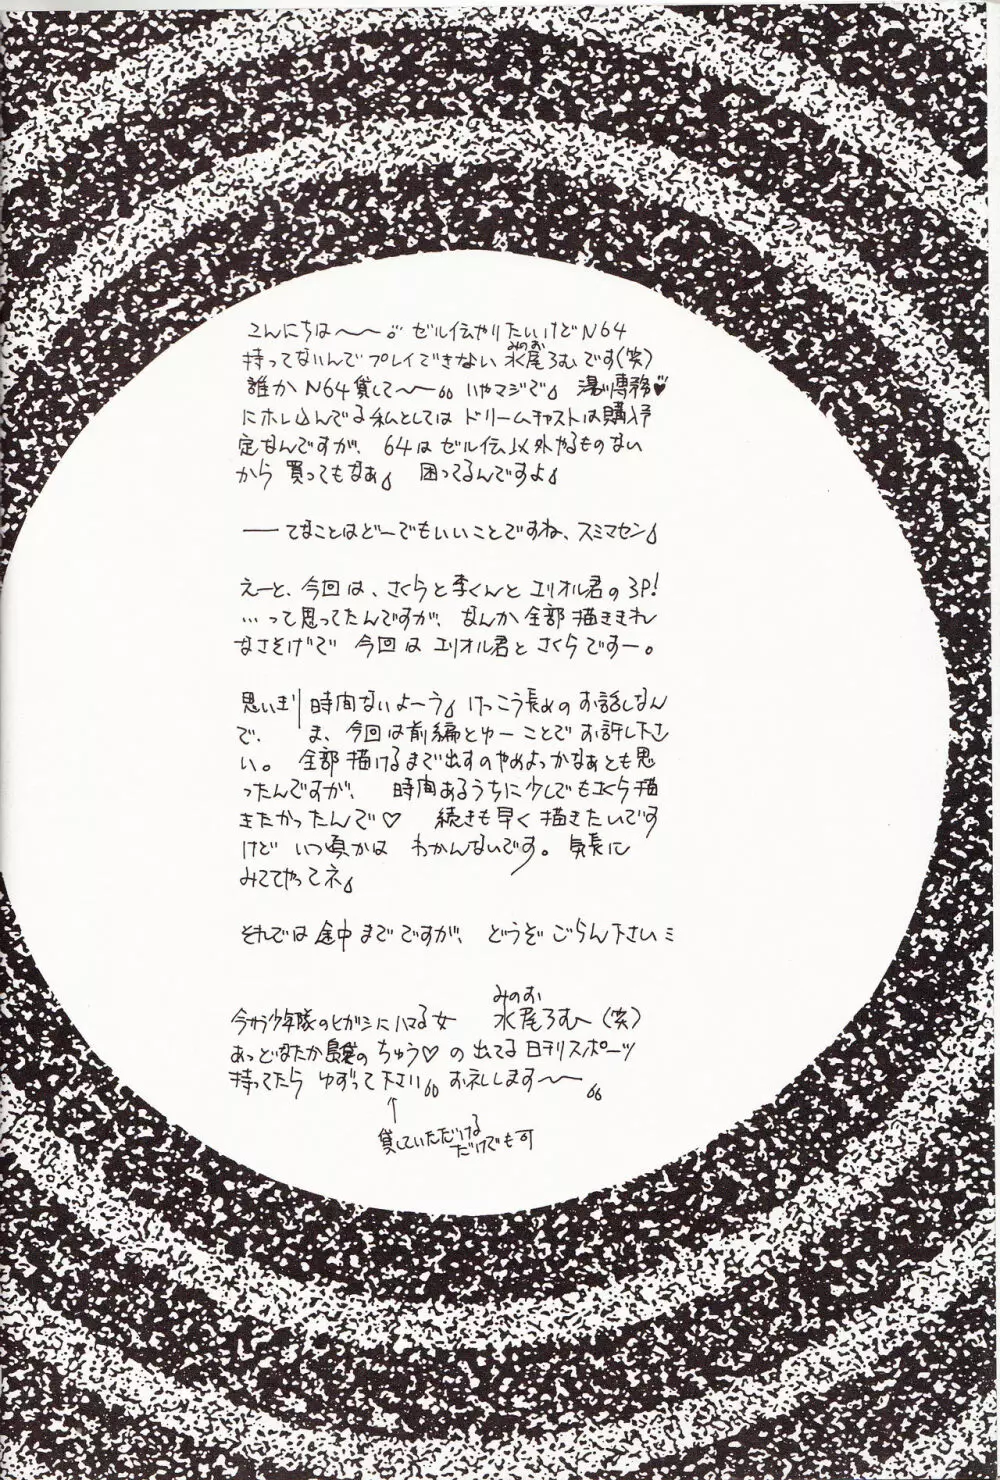 こんにちは〜〜。 ゼル伝やりたいけどN64
みのお
持ってないんでプレイできない 水尾ろむです(笑)
誰か N64貸して〜〜。。いやマジで。 湯川専務♡
にホレ込んでる私としては ドリームチャストは購入予
定なんですが、 64は ゼル伝以外やるものない
から 買ってもなぁ。 困ってるんですよ。
── てなことはどーでもいいことですね、スミマセン。
えーと、今回は、さくらと李くんと エリオル君の3P!
…って思ってたんですが、なんか全部描ききれ
なさそげで 今回は エリオル君と さくらですー。
思いきり 時間ないよーう。けっこう長めのお話しなん
で、 ま、今回は前編とゆーことでお許し下さ
い。 全部描けるまで出すのやめよっかなぁとも思
ったんですが、 時間あるうちに少しでもさくら描
きたかったんで♡ 続きも早く描きたいです
けど いつ頃かは わかんないです。気長に
みててやってネ。
それでは 途中までですが、 どうぞ ごらん下さいミ
みのお
今さら少年隊のヒガシにハマる女 水尾ろむ〜(笑)
あっどなたか のちゅう♡の出てる日刊スポーツ
持ってたら ゆずって下さい。。お礼します〜〜。。
↑
貸していただける
だけでも可